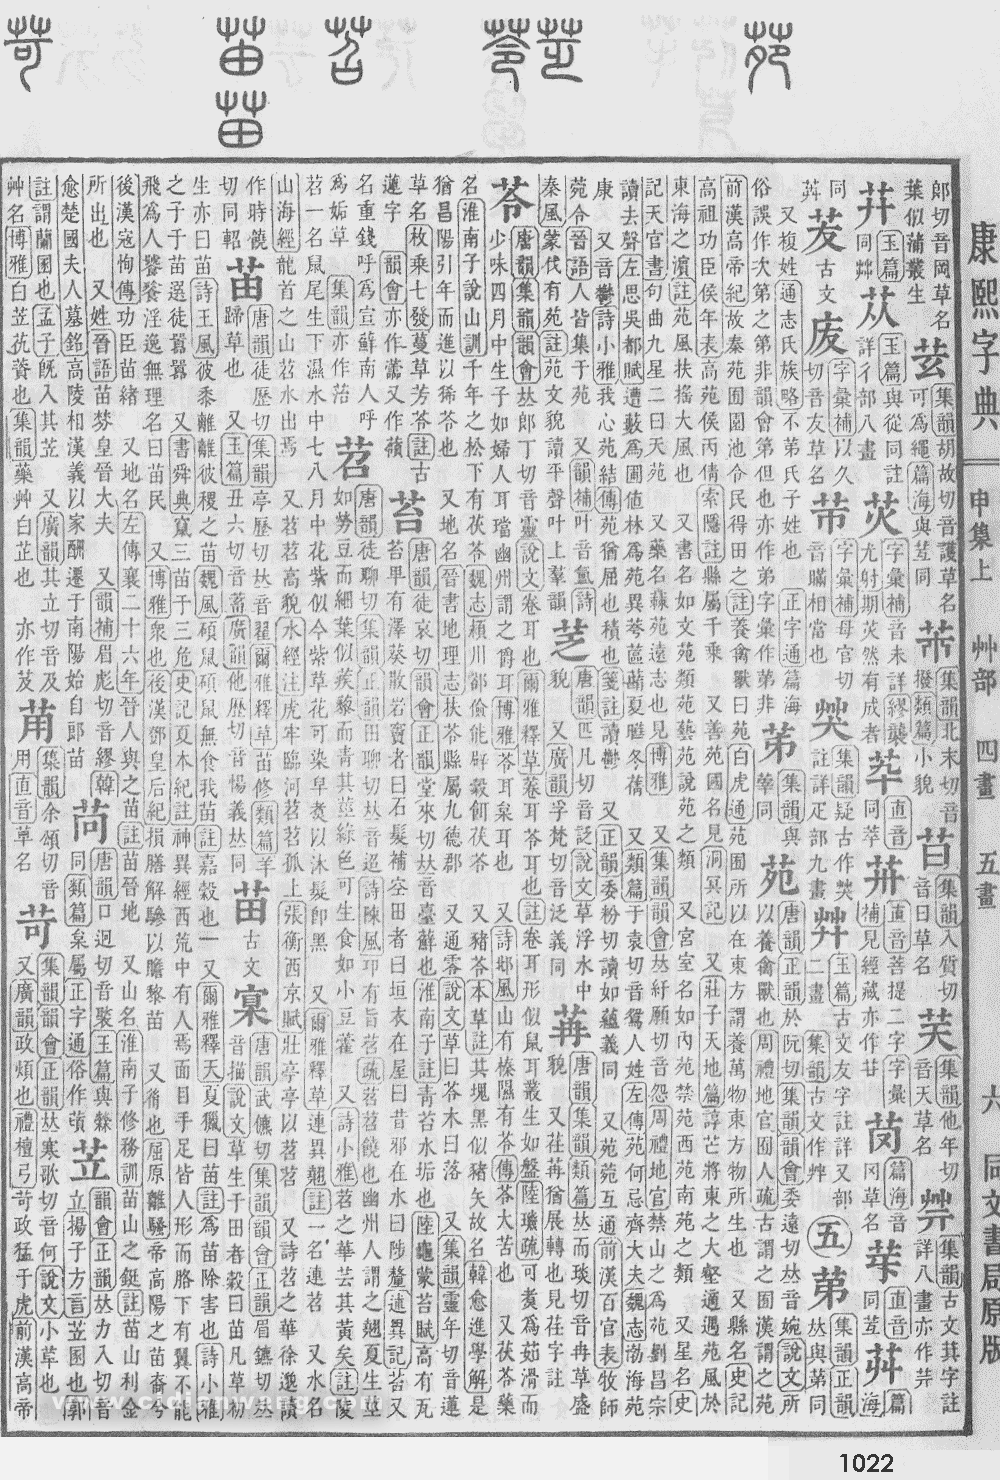 康熙字典 申集上 艸部 四畫 五畫 六 同文書局原版
郞切音岡草名
葉似蒲叢生
苀
集韻胡故切音護草名
可爲繩
芾
苜
集韻入質切
音日草名
芺
集韻他年切
音天草名
茻
集韻古文萁字註
詳八畫亦作芉
玉篇
同艸
苁
玉篇與從同註
詳彳部八畫
苂
字彙補音未詳繆襲
尤射期苂然有成者
苹
直音
同萃
直音菩提二字
補見經藏亦作
苠
篇海音
冈草名
直音
同苙
茾
篇海
同
茇
古文
庋
字彙補以久
切音友草名
芇
字彙補母官切
音瞞相當也
正字通
集韻疑古作
註詳疋部九畫
艸
玉篇古文友字註詳又部
二畫
集韻古文作艸
五
苐
集韻正韻
𠀤與苐同
又複姓通志氏族略不第氏子姓也
俗誤作次第之第非韻會第但也亦作弟字彙作第非
苐
集韻與
䔑同
苑
唐韻正韻於阮切集韻韻會委遠切𠀤音婉說文所
以養禽獸也周禮地官囿人疏古謂之囿漢謂之苑
前漢高帝紀故秦苑囿園池令民得田之註養禽獸曰苑白虎通苑囿所以在東方謂養萬物東方物所生也 又縣名史記
高祖功臣侯年表高苑侯丙倩索隱註縣屬千乘 又善苑國名見洞冥記 又莊子天地篇諄芒將東之大壑適遇苑風於
東海之濵註苑風扶搖大風也 又書名如文苑類苑藝苑說苑之類 又宮室名如內苑禁苑西苑南苑之類 又星名史
記天官書句曲九星二曰天苑 又藥名蘇苑遠志也見博雅 又集韻韻會𠀤紆願切音怨周禮地官禁山之爲苑劉昌宗
讀去聲左思吳都賦遭藪爲圃値林爲苑異荂蓲蘛夏曄冬蒨 又類篇于袁切音鴛人姓左傳苑何忌齊大夫魏志渤海苑
康 又音鬱詩小雅我心苑結傳苑猶屈也積也箋註讀鬱 又正韻委粉切讀如蘊義同 又苑苑互通前漢百官表牧師
菀令晉語人皆集于苑 又韻補叶音氳詩
秦風蒙伐有苑註苑文貌讀平聲叶上羣韻
芝
唐韻匹凡切音芝說文草浮水中
貌 又廣韻孚梵切音泛義同
苒
唐韻集韻類篇𠀤而琰切音冉草盛
貌 又苒苒猶展轉也見荏字註
苓
唐韻集韻韻會𠀤郞丁切音靈說文卷耳也爾雅釋草菤耳苓耳也註卷耳形似鼠耳叢生如盤陸璣疏可煑爲茹滑而
少味四月中生子如婦人耳璫幽州謂之爵耳博雅苓耳枲耳也 又詩邶風山有榛隰有苓傳苓大苦也 又茯苓藥
名淮南子說山訓千年之松下有茯苓魏志潁川郤儉能辟穀餌茯苓 又豬苓本草註其塊黑似豬矢故名韓愈進學解是
猶昌陽引年而進以豨苓也 又地名晉書地理志扶苓縣屬九德郡 又通零說文草曰苓木曰落 又集韻靈年切音蓮
草名枚乘七發蔓草芳苓註古
蓮字 韻會亦作蘦又作蘋
苔
唐韻徒哀切韻會正韻堂來切𠀤音臺蘚也淮南子註靑苔水垢也陸龜蒙苔賦高有瓦
苔卑有澤葵散若竇者曰石髮補㝐田者曰垣衣在屋曰昔邪在水曰陟釐述異記苔又
名重錢呼爲宣蘚南人呼
爲姤草 集韻亦作治
苕
唐韻徒聊切集韻正韻田聊切𠀤音迢詩陳風邛有旨苕疏苕苕饒也幽州人謂之翹饒夏生莖
如勞豆而細葉似蒺藜而靑其莖綠色可生食如小豆藿 又詩小雅苕之華芸其黃矣註陵
苕一名鼠尾生下濕水中七八月中花紫似今紫草花可染皁煑以沐髮卽黑 又爾雅釋草連異翹註一名連苕 又水名
山海經龍首之山苕水出焉 又苕苕高貌水經注虎牢臨河苕苕孤上張衡西京賦壯亭亭以苕苕 又詩苕之華徐邈讀
作時饒
切同軺
苖
唐韻徒歷切集韻亭歷切𠀤音翟爾雅釋草苖蓨類篇羊
蹄草也 又玉篇丑六切音蓄廣韻他歷切音惕義𠀤同
苗
古文
𡩀
唐韻武儦切集韻韻會正韻眉鑣切𠀤
音描說文草生于田者穀曰苗凡草初
生亦曰苗詩王風彼黍離離彼稷之苗魏風碩鼠碩鼠無食我苗註嘉穀也 又爾雅釋天夏獵曰苗註爲苗除害也詩小雅
之子于苗選徒囂囂 又書舜典竄三苗于三危史記夏本紀註神異經西荒中有人焉面目手足皆人形而胳下有翼不能
飛爲人饕餮淫逸無理名曰苗民 又博雅衆也後漢鄧皇后紀損膳解驂以贍黎苗 又胄也屈原離騷帝高陽之苗裔兮
後漢寇恂傳功臣苗緒 又地名左傳襄二十六年晉人與之苗註苗晉地 又山名淮南子修務訓苗山之鋋註苗山利金
所出也 又姓晉語苗棼皇晉大夫 又韻補眉彪切音繆韓
愈楚國夫人墓銘高陵相漢義以家酬遷于南陽始自郞苗
苘
唐韻口迥切音褧玉篇與檾
同類篇枲屬正字通俗作䔛
苙
韻會正韻𠀤力入切音
立揚子方言苙圂也郭
註謂蘭圂也孟子旣入其苙 又廣韻其立切音及
艸名博雅白苙芁蕡也集韻藥艸白芷也 亦作芨
苚
集韻余頌切音
用直音草名
苛
集韻韻會正韻𠀤寒歌切音何說文小草也
又廣韻政煩也禮檀弓苛政猛于虎前漢高帝
1022